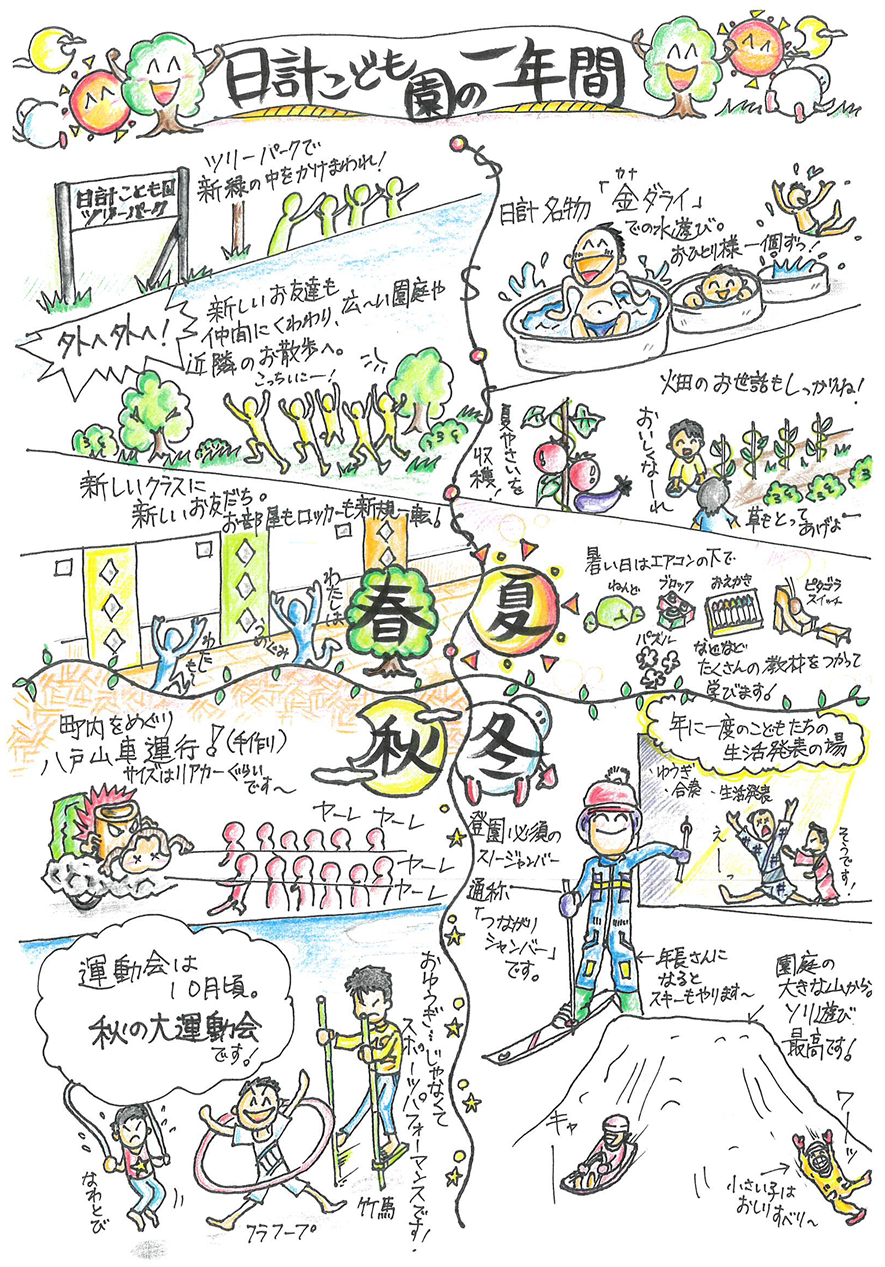 日計こども園の一年間
ツリーパークで
新緑の中をかけまわれ!
日計こども園
ツリーパーク
外へ外へ!
新しいお友達も
仲間にくわわり、広〜い園庭や
近隣のお散歩へ。
こっちいこー!
新しいクラスに
新しいお友だち。
お部屋もロッカーも新規一転!
わたしは
うめぐみ
わたし
もも
春
日計名物「金ダライ」
カナ
での水遊び。
おひとり様一個ずつ!
畑のお世話もしっかりね!
夏やさいを
収穫!
おいしくなーれ
草もとって
あげよー
夏
暑い日はエアコンの下で
ねんど
ブロック
おえかき
ピタゴラ
スイッチ
パズル
などなど
たくさんの教材をつかって
学びます!
秋
町内をめぐり
八戸山車運行!(手作り)
サイズはリアカーぐらい
です〜
ヤーレ
ヤーレ
ヤーレ
ヤーレ
運動会は
10月頃。
秋の大運動会
です!
おゆうぎ…じゃなくて
スポーツパフォーマンスです!
なわとび
フラフープ
竹馬
冬
年に一度のこどもたちの
生活発表の場
・ゆうぎ
・合奏
・生活発表
えーっ
そうです!
登園必須の
スノージャンバー
通称
「つながり
ジャンバー」
です。
年長さんに
なると
スキーもやります〜
園庭の
大きな山から。
ソリ遊び
最高です!
キャー
ワーッ
小さい子は
おしりすべり〜